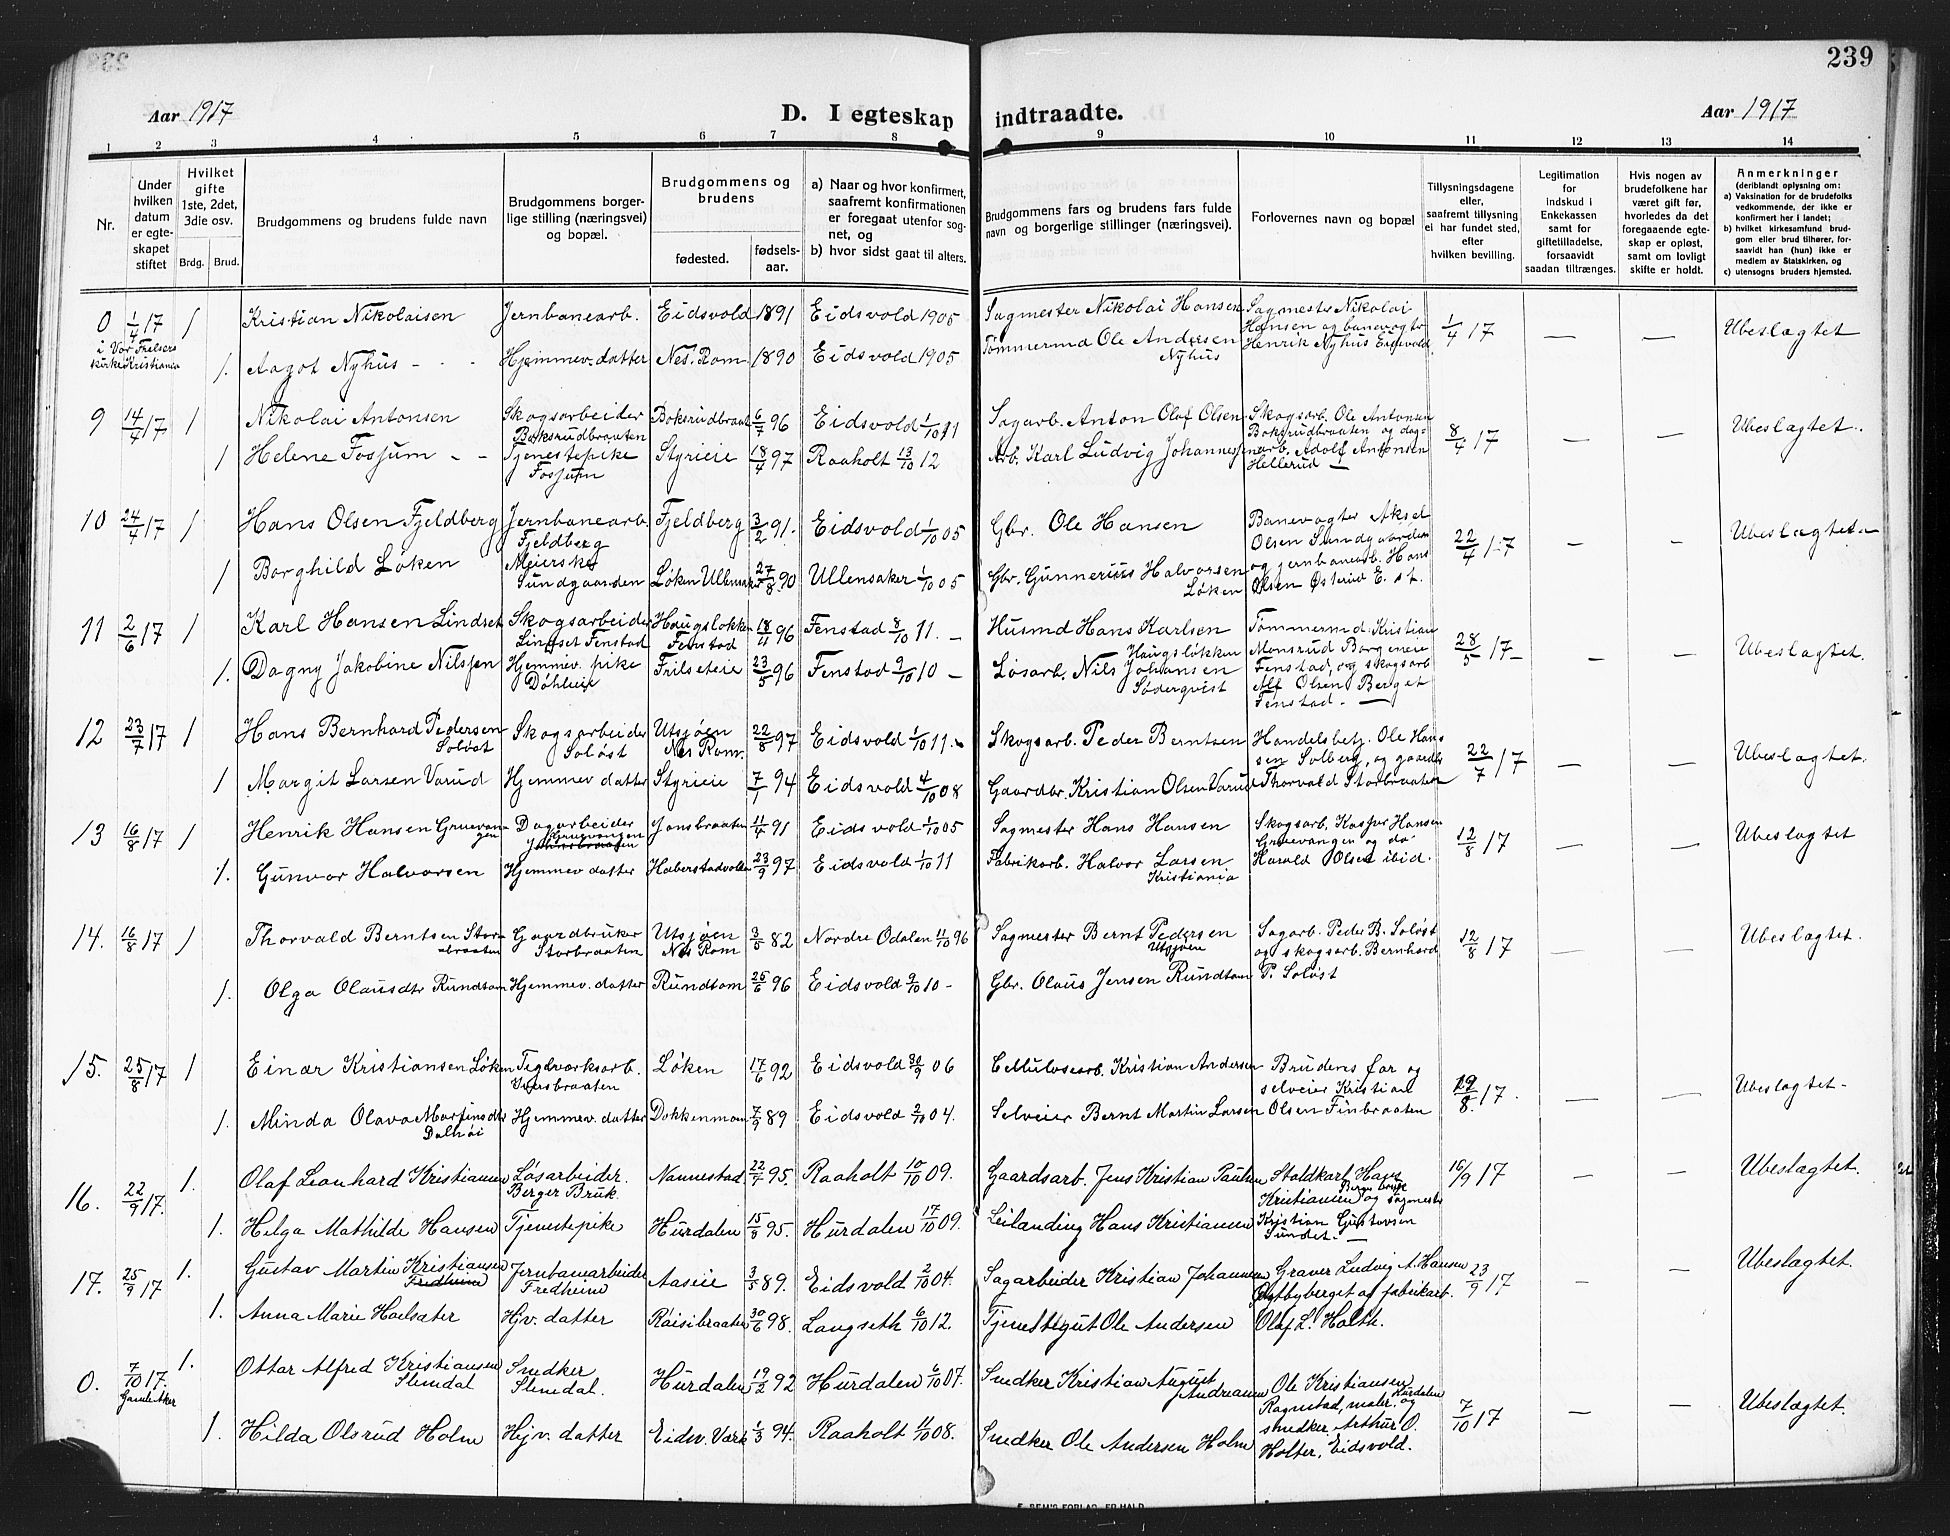 239
Aar 1917
D. I egteskap indtraadte.
Aar 1917
1 2 3 4 5 6 7 8 9 10 11 12 13 14
Nr.
Under hvilken datum er egteskapet stiftet
Hvilket gifte 1ste, 2det, 3die osv.
Brdg. Brud.
Brudgommens og brudens fulde navn
Brudgommens borgerlige stilling (næringsvei) og bopæl.
Brudgommens og brudens
fødested. fødselsaar.
a) Naar og hvor konfirmert, saafremt konfirmationen er foregaat utenfor sognet, og
b) hvor sidst gaat til alters.
Brudgommens fars og brudens fars fulde navn og borgerlige stillinger (næringsvei).
Forlovernes navn og bopæl
Tillysningsdagene eller, saafremt tillysning ei har fundet sted, efter hvilken bevilling.
Legitimation for indskud i Enkekassen samt for giftetilladelse, forsaavidt saadan tiltrænges.
Hvis nogen av brudefolkene har været gift før, hvorledes da det foregaaende egteskap er opløst, samt om lovligt skifte er holdt.
Anmerkninger
(deriblandt oplysning om:
a) Vaksination for de brudefolks vedkommende, der ikke er konfirmert her i landet;
b) hvilket kirkesamfund brudgom eller brud tilhører, forsaavidt han (hun) ikke er medlem av Statskirken, og
c) utensogns bruders hjemsted.
0 1/4 17 1 Kristian Nikolaisen Jernbanearb. Eidsvold 1891 Eidsvold 1905 Sagmester Nikolai Hansen Sagmester Nikolai Hansen og banevogter Henrik Nyhus Eidsvold 1/4 17 — — Ubeslægtet
i Vor Frelsers kirke Kristiania
1. Aagot Nyhus - - Hjemmev. datter Nes. Rom. 1890 Eidsvold 1905 Tømmermd Ole Andersen Nyhus
9 14/4 17 1 Nikolai Antonsen Skogsarbeider Boksrudbraaten Boksrudbraat 6/7 96 Eidsvold 1/10 11 Sagarb. Anton Olaf Olsen Skogsarb. Ole Antonsen Boksrudbraaten og dagsarb. Adolf Antonsen Hellerud — 8/4 17 — — Ubeslægtet.
1 Helene Fossum - - Tjenestepike Fossum Styrieie 18/4 97 Raaholt 13/10 12 Arb. Karl Ludvig Johannessen
10 24/4 17 1 Hans Olsen Fjeldberg Jernbanearb. Fjeldberg Fjeldberg 3/2 91. Eidsvold 1/10 05 Gbr. Ole Hansen Banevogter Aksel Olsen Sundgaarden og jernbanearb. Hans Olsen Østerud E. st. 22/4 17 - - Ubeslægtet
1 Borghild Løken Meierske Sundgaarden Løken Ullensaker 27/8 90 Ullensaker 1/10 05 Gbr. Gunnerius Halvorsen Løken
11 2/6 17 1 Karl Hansen Lindset Skogsarbeider Lindset Fenstad Haugsløkken Fenstad 18/11 96 Fenstad 8/10 11. - Husmd Hans Karlsen Haugsløkken Tømmermd. Kristian Monsrud Borgeneie Fenstad, og skogsarb Alf Olsen Berget Fenstad. — 28/5 17 - — Ubeslægtet.
1. Dagny Jakobine Nilssen Hjemmev. pike Døhleie Frilseteie 23/5 96 Fenstad 9/10 10 - Løsarb. Nils Johansen Söderqvist
12 23/7 17 1 Hans Bernhard Pedersen Soløst Skogsarbeider Soløst Utsjøen Nes Rom. 22/8 97 Eidsvold 1/10 11. Skogsarb. Peder Berntsen Handelsbetj. Ole Hansen Solberg, og gaardbr Thorvald Storbraaten 22/7 17 — — Ubeslægtet.
1 Margit Larsen Varud Hjemmev datter Styrieie 7/1 94 Eidsvold 4/10 08 Gaardbr. Kristian Olsen Varud
13 16/8 17 1 Henrik Hansen Gruevangen Dagarbeider Gruevangen Jonsbraaten 11/4 91 Eidsvold 1/10 05 Sagmester Hans Hansen Skogsarb. Kaspar Hansen Gruevangen og do Harald Olsen ibid. 12/8 17 — — Ubeslægtet
1. Gunvor Halvorsen Hjemmev datter Haberstadvolden 23/9 97 Eidsvold 1/10 11 Fabrikarb. Halvor Larsen Kristiania
14. 16/8 17 1 Thorvald Berntsen Storbraaten Gaardbruker Storbraaten Utsjøen Nes Rom 3/5 82 Nordre Odalen 11/10 96 Sagmester Bernt Pedersen Utsjøen Sagarb. Peder B. Soløst og skogsarb. Bernhard P. Soløst 12/8 17 — — Ubeslægtet.
1. Olga Olausdtr Rundtom Hjemmev. datter Rundtom 25/6 96 Eidsvold 9/10 10 - Gbr. Olaus Jensen Rundtom
15. 25/8 17 1 Einar Kristiansen Løken Teglverksarb. Iversbraaten Løken 17/6 92 Eidsvold 30/9 06 Cellulosearb. Kristian Andersen Brudens far og selveier Kristian Olsen Finbraaten 19/8 17. — — Ubeslægtet -
1. Minda Olava Martinsdtr Dalhøi Hjemmev. datter Dokkenmoen 7/9 89 Eidsvold 2/10 04. Selveier Bernt Martin Larsen
16. 22/9 17. 1. Olaf Leonhard Kristiansen Løsarbeider. Berger Bruk. Nannestad 22/7 95. Raaholt 10/10 09. Gaardsarb. Jens Kristian Paulsen Staldkarl Hans Kristiansen Berger bruk og sagmester Kristian Gustavsen Sundet. — 16/9 17 — — Ubeslægtet.
1. Helga Mathilde Hansen Tjenestepike Hurdalen 15/8 95. Hurdalen 17/10 09. Leilending Hans Kristiansen
17. 25/9 17 1. Gustav Martin Kristiansen Fredheim Jernbanearbeider Fredheim Aaseie 3/5 89. Eidsvold 2/10 04. Sagarbeider Kristian Johannesen Graver Ludvig A. Hansen Østbyberget og fabrikarb. Olaf L. Holth. 23/9 17 - - Ubeslægtet.
1. Anna Marie Hoelsæter Hjv. datter Raisibraaten 30/6 98. Langseth 6/10 12. Tjenestegut Ole Andersen
0. 7/10 17. Gamle Aker 1. Ottar Alfred Kristiansen Slemdal Snedker Slemdal. Hurdalen 19/2 92 Hurdalen 6/10 07. Snedker Kristian August Andreassen Ole Kristiansen Ragnstad, maler, Hurdalen og snedker Arthur O. Holter, Eidsvold. 7/10 17 — — Ubeslægtet.
1. Hilda Olsrud Holm Hjv. datter Eidsv. Værk 1/3 94. Raaholt 11/10 08. Snedker Ole Andersen Holm